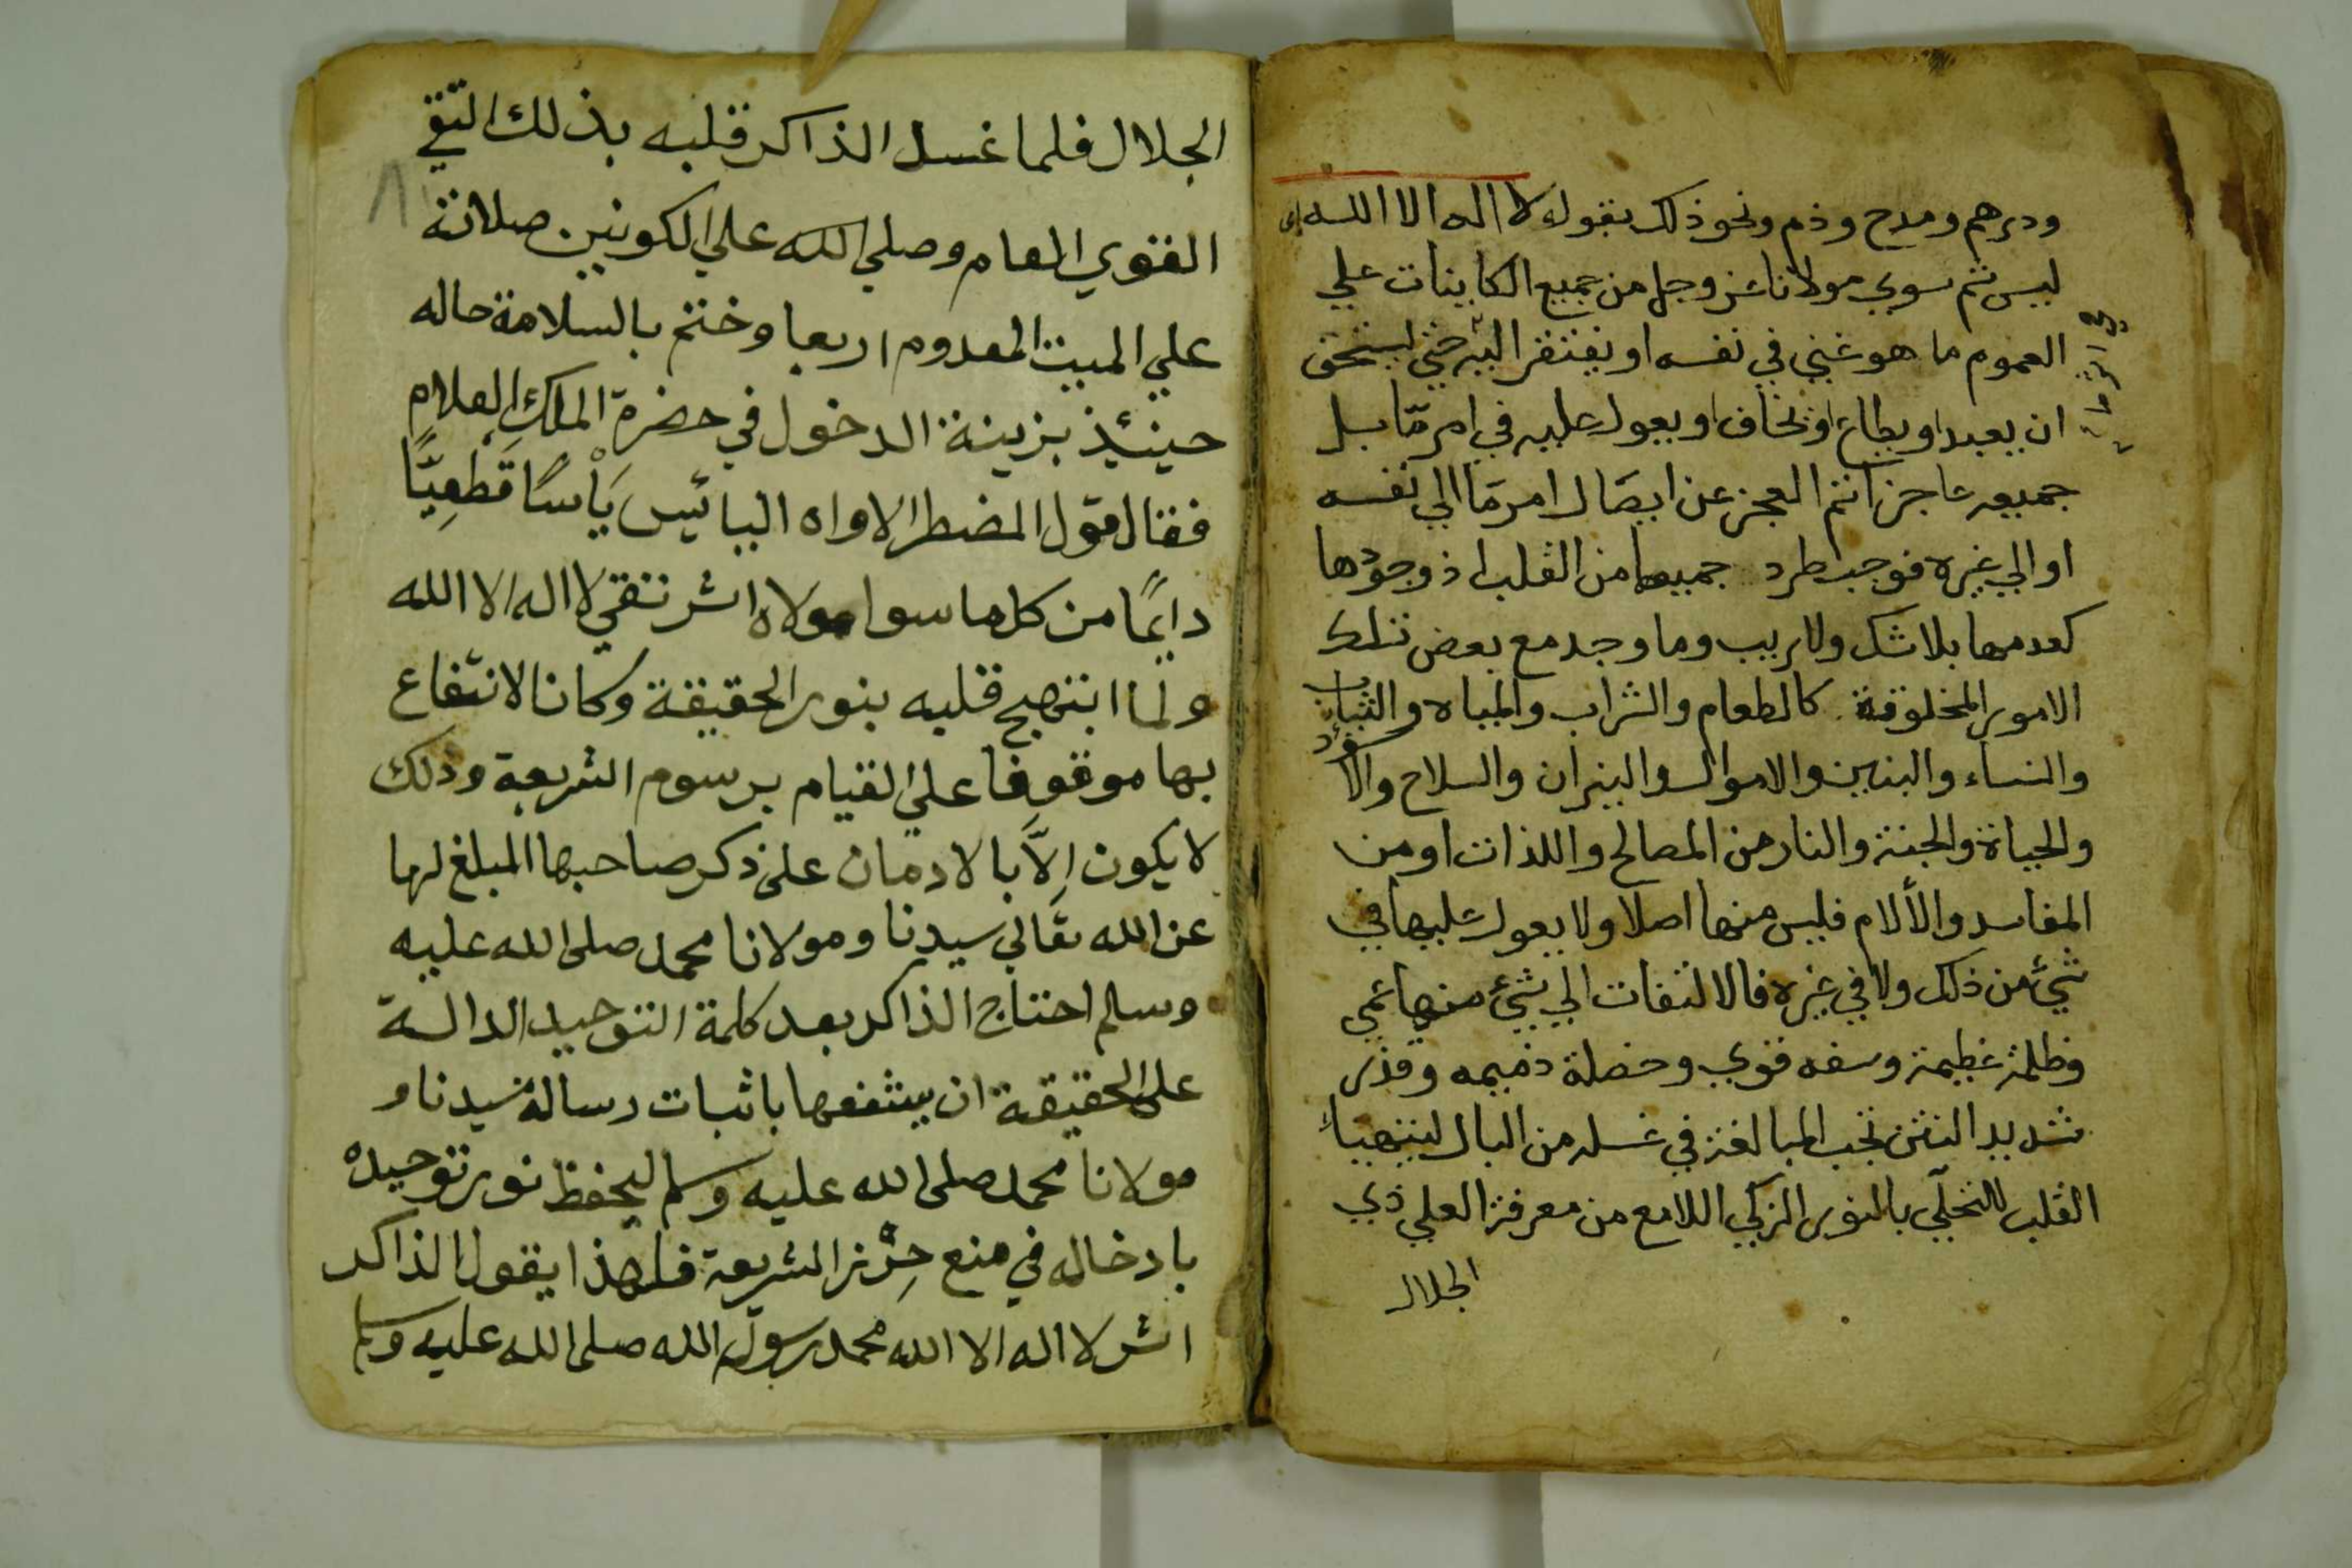 ودرهم ومدح وذم ونحو ذلك بقوله لا اله الا الله اى
ليس ثم سوي مولانا عز وجل من جميع الكاينات علي
العموم ما هو غني في نفسه او يفتقر اليه حتي ليستحق
ان يعبد او يطاع او يخاف او يعول عليه في امر مّا بل
جميعه عاجز اتم العجز عن ايصال امر مّا الي نفسه
او الي غيره فوجب طرد جميعها من القلب اذ وجودها
كعدمها بلا شك ولا ريب وما وجد مع بعض تلك
الامور المخلوقة كالطعام والشراب والمياه والثياب
والنساء والبنين والاموال والنيران والسلاح والا
والحياة والجنة والنار من المصالح واللذات او من
المفاسد والألام فليس منها اصلا ولا يعول عليها في
شيء من ذلك ولا في غيره فالالتفات الي شيء منها عمي
وظلمة عظيمة وسفه قوي وخصلة ذميمه وقذر
شديد النتن تجب المبالغة في غسله من البال ليتهيأ
القلب للتحلّي بالنور الزكي اللامع من معرفة العلي ذي
الجلال
الجلال فلما غسل الذاكر قلبه بذلك التقي
القوي المعام وصلي الله علي الكونين صلاته
علي الميت المعدوم اربعا وختم بالسلامة حاله
حينئذ بزينة الدخول في حضرة الملك العلام
فقال قول المضطر الاواه البائيس يَأْسًا قَطْعِيًّا
دايمًا من كل ما سوا مولاه اش تقي لا اله الا الله
ولما ابتهج قلبه بنور الحقيقة وكان الانتفاع
بها موقوفا علي القيام برسوم الشريعة وذلك
لا يكون اِلاَّ بالادمان على ذكر صاحبها المبلغ لها
عن الله تعالي سيدنا ومولانا محمد صلى الله عليه
وسلم احتاج الذاكر بعد كلمة التوحيد الدالة
على الحقيقة ان يشفعها باثبات رسالة سيدنا و
مولانا محمد صلى الله عليه وسلم ليحفظ نور توحيده
بادخاله في منع حِرْز الشريعة فلهذا يقول الذاكر
اش لا اله الا الله محمد رسول الله صلى الله عليه وسلم